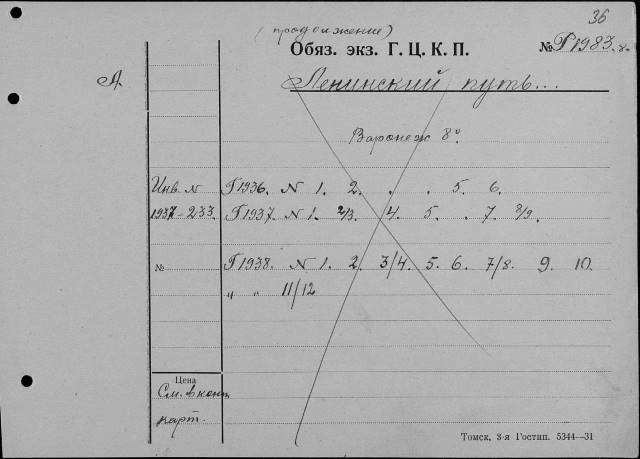 36
(продолжение)
Обяз. экз. Г. Ц. К. П. № Р1983
А
Ленинский путь...
Варонеж 8º
Инв. N Г1936. N 1. 2. , , 5. 6.
1937-233. Г1937. N 1. 2/3. 4. 5. , 7. 8/9.
№ Г1938. N 1. 2. 3/4. 5. 6. 7/8. 9. 10.
" " 11/12
Цена
См. в конт.
карт.
Томск, 3-я Гостип. 5344—31